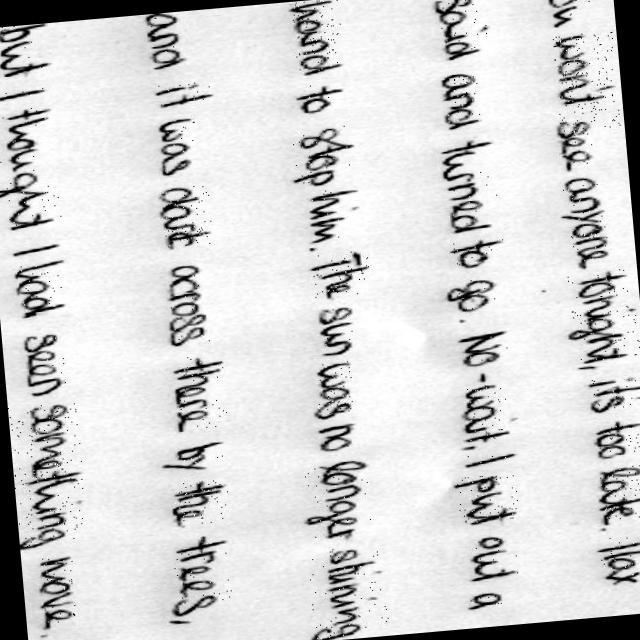 won't see anyone tonight, it's too late
said and turned to go. No - wait I put out a
hand to stop him. The sun was no longer shining
and it was dark across there by the trees,
but I thought I had seen something move